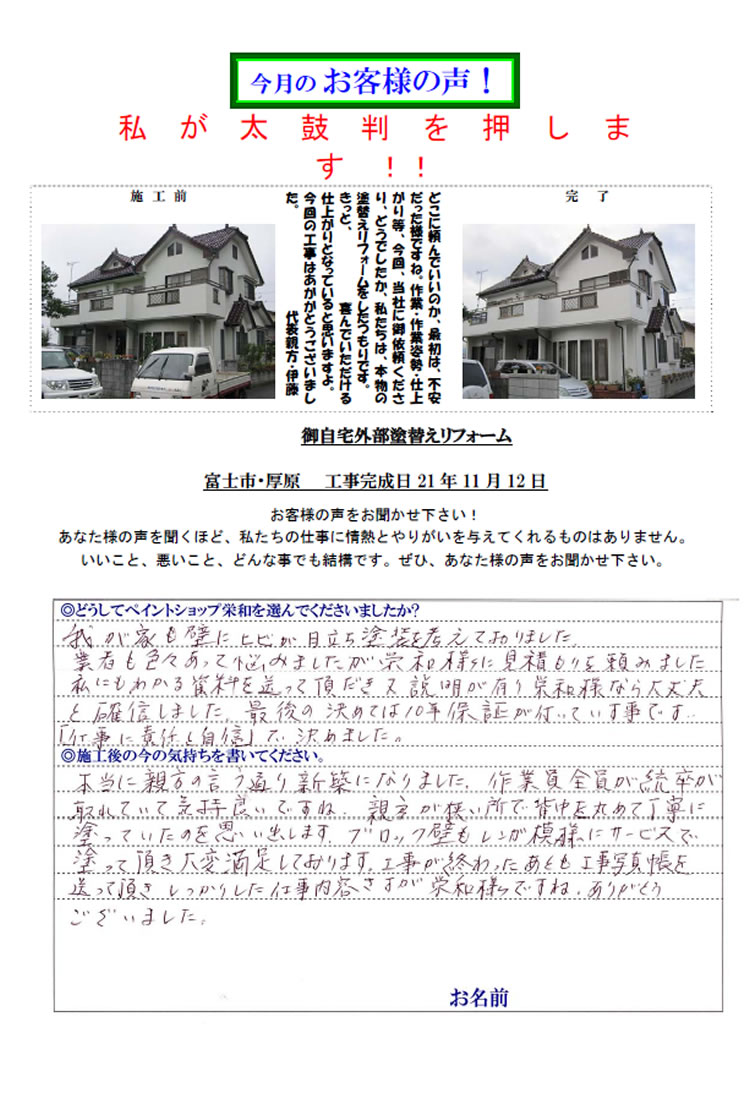 今月の お客様の声！
私が太鼓判を押しま
す!!
施工前
完了
どこに頼んでいいのか、最初は、不安
だった様ですね。作業・作業姿勢・仕上
がり等、今回、当社に御依頼くださ
り、どうでしたか、私たちは、本物の
塗替えリフォームをしたつもりです。
きっと、 喜んでいただける
仕上がりとなっていると思いますよ。
今回の工事はあがかとうございまし
た。 代表親方・伊藤
御自宅外部塗替えリフォーム
富士市・厚原 工事完成日21年11月12日
お客様の声をお聞かせ下さい！
あなた様の声を聞くほど、私たちの仕事に情熱とやりがいを与えてくれるものはありません。
いいこと、悪いこと、どんな事でも結構です。ぜひ、あなた様の声をお聞かせ下さい。
◎どうしてペイントショップ栄和を選んでくださいましたか？
我が家も壁にヒビが目立ち塗装を考えておりました。
業者も色々あって悩みましたが栄和様に見積もりを頼みました
私にもわかる資料を送って頂だき又説明が有り栄和様なら大丈夫
と確信しました。最後の決めては10年保証が付いています事です。
「仕事に責任と自信」で決めました。
◎施工後の今の気持ちを書いてください。
本当に親方の言う通り新築になりました。作業員全員が統卒が
取れていて気持良いですね。親方が狭い所で背中を丸めて丁寧に
塗っていたのを思い出します。ブロック壁もレンガ模様にサービスで
塗って頂き大変満足しております。工事が終わったあとも工事写真帳を
送って頂きしっかりした仕事内容さすが栄和様ですね。ありがとう
ございました。
お名前